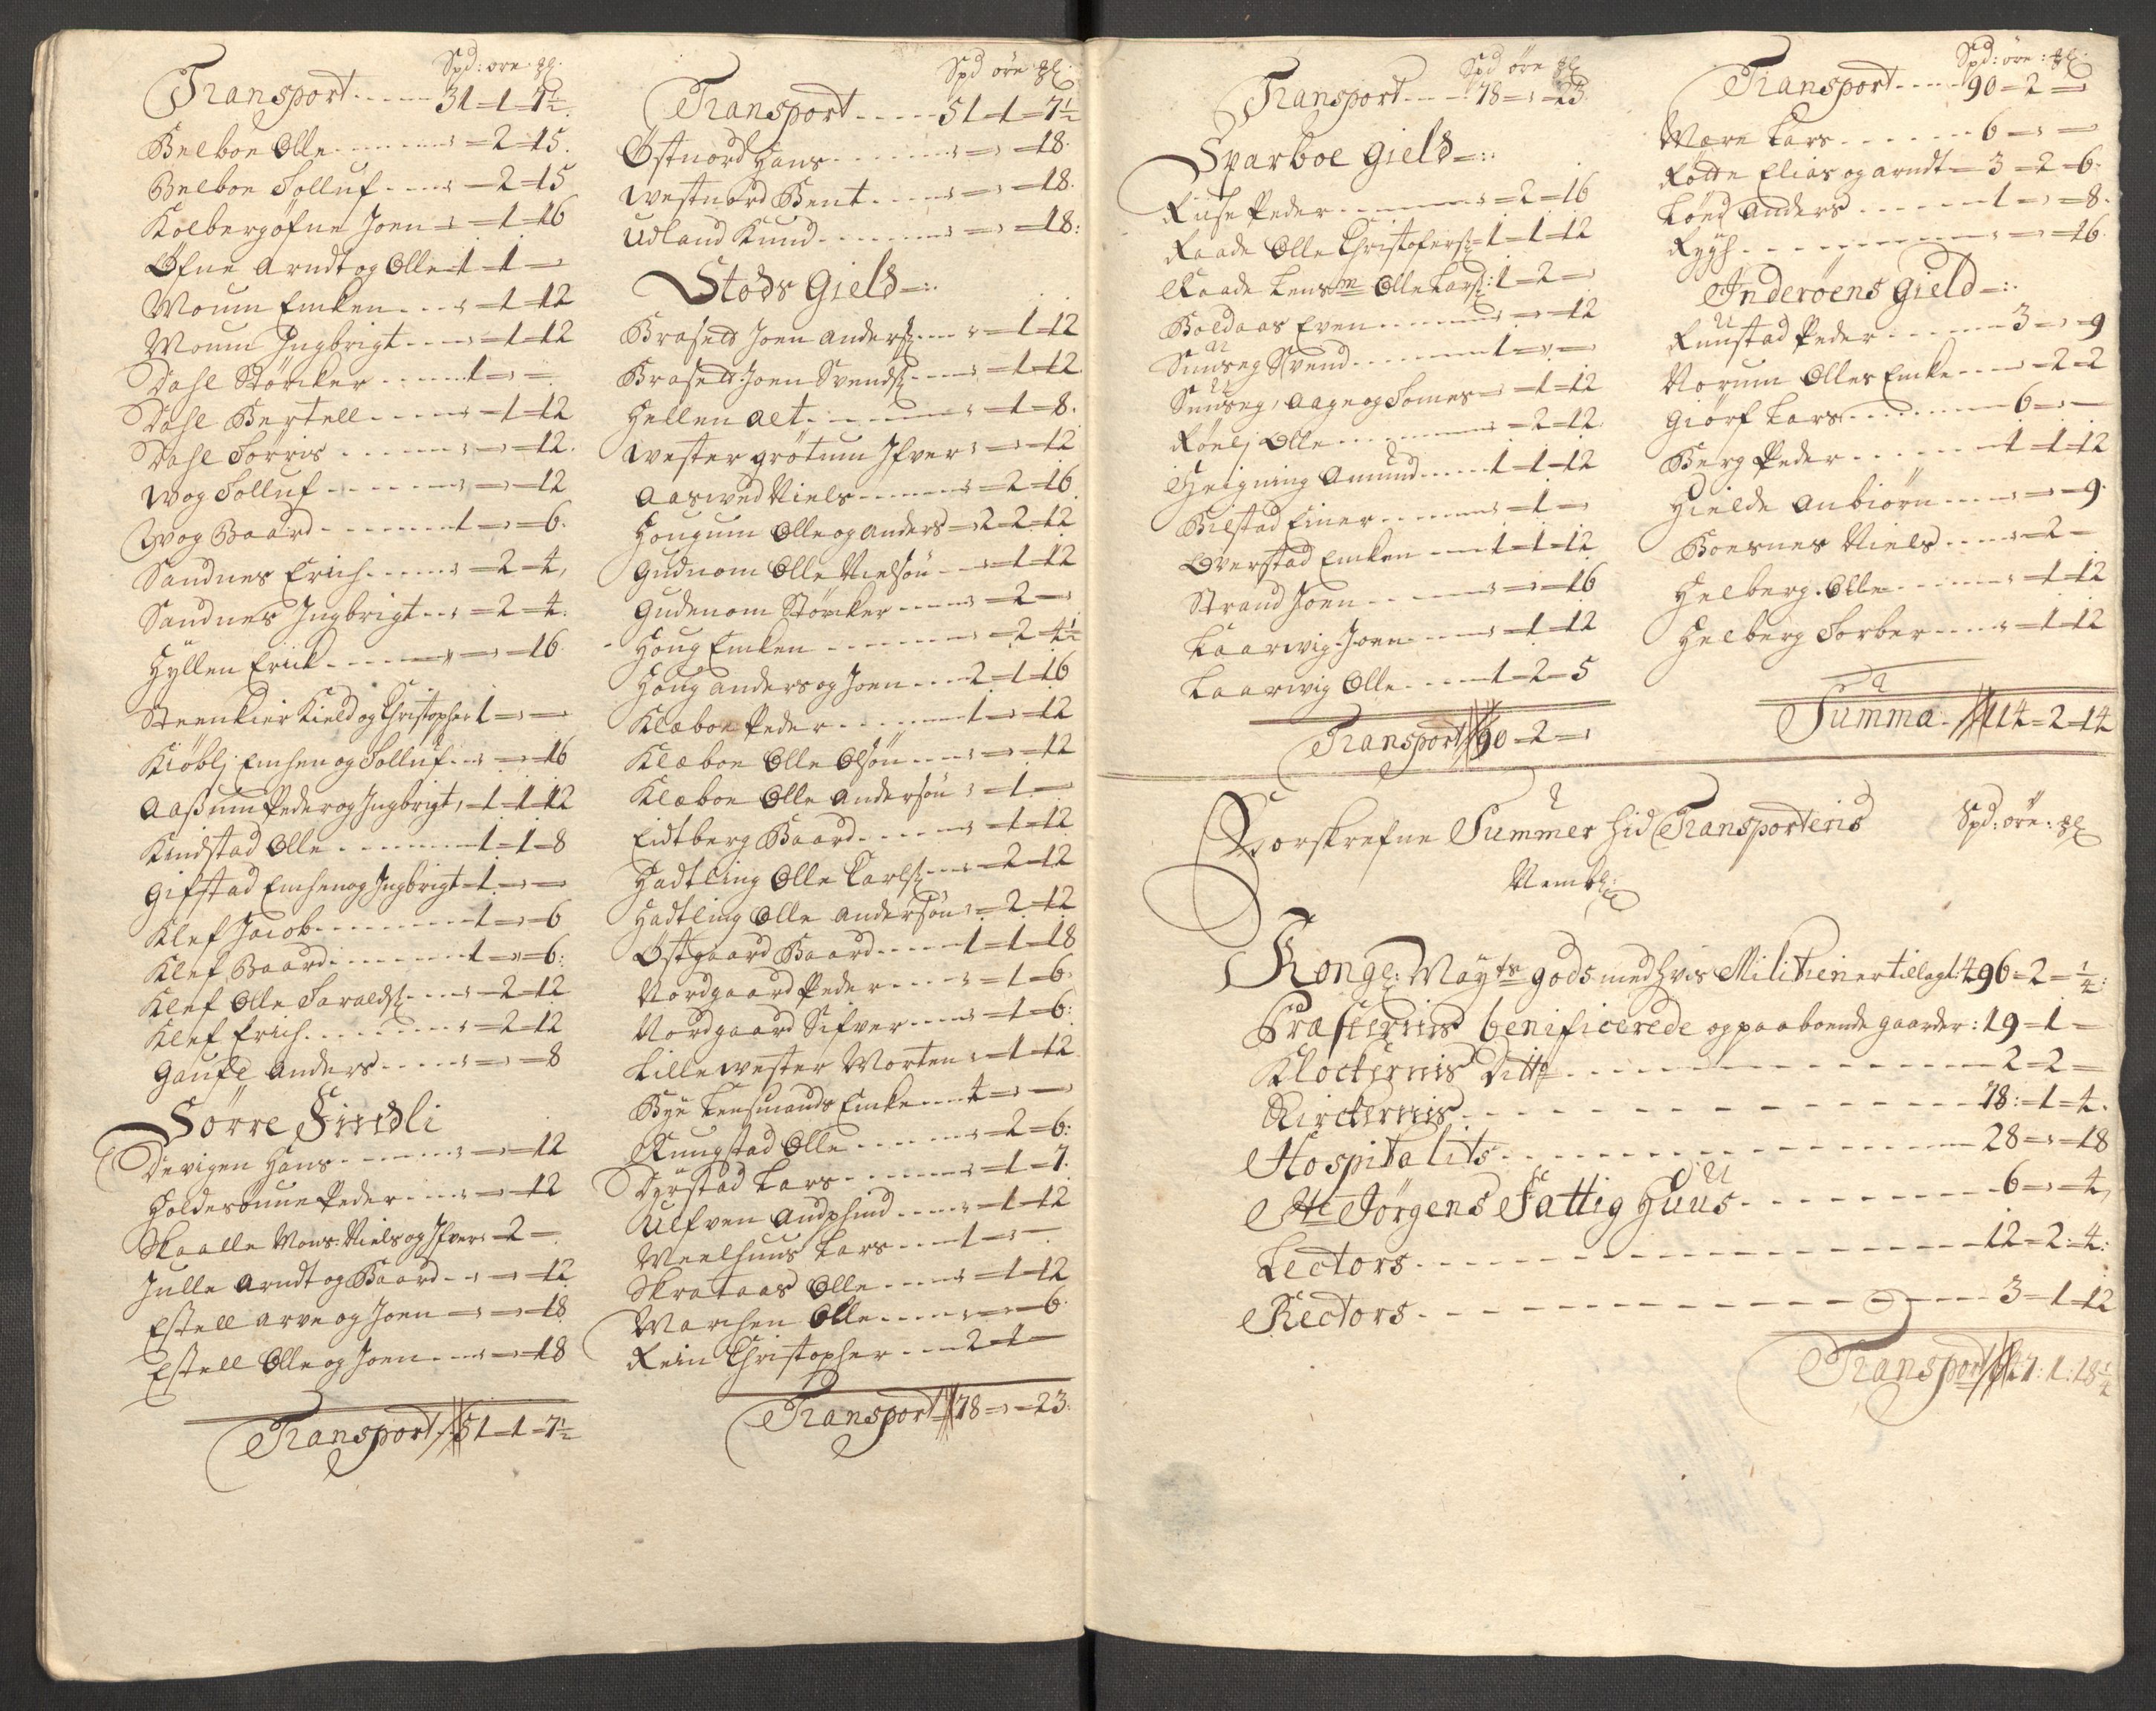 Spd: øre: ℔
Transport - - - - - 31 = 1 = 7½
Bælboe Olle - - - - - - „ = 2 = 15.
Bælboe Tolluf - - - - „ = 2 = 15
Kolbergøfne Joen - „ = 1 = 16
Øfne Arndt og Olle 1 = 1 = „
Moum Emken - - - „ = 1 = 12
Moum Ingbrigt - - - „ = 1 = 12
Dahl Størcker - - - - - 1 = „ =
Dahl Bertell - - - - - „ = 1 = 12
Dahl Torris - - - - - - „ = „ = 12.
Wog Tolluf - - - - - - „ = „ = 12
Wog Baard - - - - - - 1 = „ = 6.
Sandnes Erich - - - - „ = 2 = 4,
Sandnes Ingbrigt - - „ = 2 = 4.
Hyllen Erick - - - - - „ = „ = 16
Steenkier Kield og Christopher 1 = „ =
Kiøblj Emhen og Tolluf - - „ = „ = 16
Aassum Peder og Ingbrigt, = 1 = 1 = 12
Kindstad Olle - - - - - - 1 = 1 = 8
Gifstad Emhen og Ingbrigt = 1 = „ =
Klef Jacob - - - - - - - 1 = „ = 6
Klef, Baard - - - - - - - 1 = „ = 6:
Klef Olle Taralds: - - - „ = 2 = 12
Klef Erich - - - - - - - „ = 2 = 12
Gaufle Anders - - - - - „ = „ = 8
Sørre Findli
Devigen Hans - - - - - „ = „ = 12
Holdesønne Peder - - - „ = „ = 12
Skaalle Mons: Niels og Ifver: = 2 =
Julle Arndt og Baard - - „ = „ = 12
Estell Arve og Joen - „ = „ = 18
Estell Olle og Joen - - - „ = „ = 18
Transport 51 = 1 = 7½
Spd øre ℔
Transport - - - - - 51 = 1 = 7½
Østnord Hans - - - - - - - „ = „ = 18.
Westnord Bent - - - - - „ = „ = 18.
Udland Knud - - - - - - „ = „ = 18:
Stods Gield
Brasett Joen Anders: - - - „ = 1 = 12
Brasett Joen Svends: - - - „ = 1 = 12
Hellem Alt - - - - - - - „ = 1 = 8.
Wester Grøtum Ifver „ = „ = 12
Aaswed Niels - - - - - - „ = 2 = 16
Hougum Olle og Anders = 2 = 2 = 12
Gudnom Olle Nielsøn - - „ = 1 = 12
Gudenom Størcker - - - - „ = 2 = „
Houg Emken - - - - - - „ = 2 = 4½
Houg Anders og Joen - - - 2 = 1 = 16
Klæboe Peder - - - - - - - 1 = „ = 12
Klæboe Olle Olsøn - - - - „ = „ = 12
Klæboe Olle Andersøn „ = 1 =
Eidtberg Baard - - - - - „ = 1 = 12
Hadtling Olle Carls: - - - „ = 2 = 12
Hadtling Olle Andersøn „ = 2 = 12
Østgaard Baard - - - - - 1 = 1 = 18
Nordgaard Peder - - - - „ = 1 = 6.
Nordgaard Sifver - - - - „ = 1 = 6:
Lille Wester Morten „ = 1 = 12
Bye Lensmands Enke - - - 4 = „ =
Rungstad Olle - - - - - - „ = 2 = 6:
Dyrstad Lars - - - - - - - „ = 1 = 7.
Ulfven Audphind - - - - „ = 1 = 12
Meelhuus Lars - - - - 1 = „ =
Skrataas Olle - - - - - „ = 1 = 12
Marchen Olle - - - - - „ = „ = 6.
Rein Christopher - - - - 2 = 1 =
Transport 78 = „ = 23:
Spd øre ℔
Transport - - - - 78 = „ = 23.
Sparboe Gield
Ruse Peder - - - - - - - „ = 2 = 16
Raade Olle Christofers: 1 = 1 = 12
Raade Lensm Olle Lars: 1 = 2 = „
Boldaas Even - - - - - - „ = „ = 12
Suuseg Svend - - - - - - 1 = „ =
Suuseg, Aage og Tomes = „ = 1 = 12
Røelj Olle - - - - - - - - „ = 2 = 12.
Heigning Amund - - - - 1 = 1 = 12
Bilstad Einer - - - - - - „ = 1 = „
Overstad Emken - - - 1 = 1 = 12
Strand Joen - - - - - - „ = „ = 16
Laarwig Joen - - - - - „ = 1 = 12
Laarwig Olle - - - - - 1 = 2 = 5
Transport 90 = 2 = „
Spd: øre: ℔
Transport - - - - 90 = 2 = „
Mære Lars - - - - - - 6 = „ =
Røtte Elias og Arndt = 3 = 2 = 6.
Lønd Anders - - - - - - 1 = „ = 8.
Rygh - - - - - - - - - - „ = „ = 16.
Inderøens Gield
Ruustad Peder - - - - - - 3 = „ = 9
Norum Olles Enke - - - „ = 2 = 2
Giørf Lars - - - - - - - - 6 = „ =
Berg Peder - - - - - - - 1 = 1 = 12
Hielde Anbiørn - - - - „ = „ = 9.
Boesnes Niels - - - - - „ = 2 =
Helberg Olle - - - - - - „ = 1 = 12
Helberg Torber - - - - „ = 1 = 12
Summa 114 = 2 = 14
Forskrefne Summer hid Transporteris Spd: øre: ℔
Nembl:
Kongl: Mayts gods med hvis Militien er tillagt: 496 = 2 = ¼:
Præsternis benificerede og paaboende gaarder: 19 = 1 =
Klockernis Ditto - - - - - - - - - - - 2 = 2 =
Kirckernis - - - - - - - - - - - - 78: = 1 = 4.
Hospitalits - - - - - - - - - - - - 28 = „ = 18
Ste Jørgens Fattig Huus - - - - - - 6 = „ = 4,
Lectors - - - - - - - - - - - - - - 12 = 2: 4:
Rectors - - - - - - - - - - - - - - 3 = 1 = 12
Transport 647: 1: 18¼